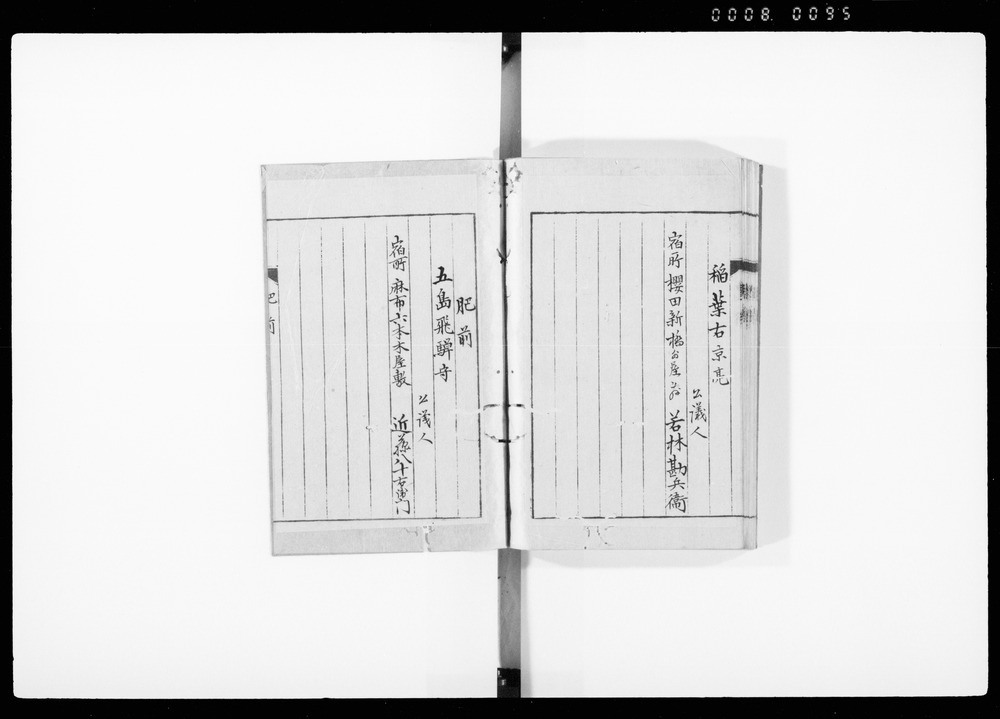 0008. 0095
稲葉右京亮
公議人
宿所 櫻田新橋
若林勘兵衛
肥前
五島飛騨守
公議人
宿所 麻布六本木屋敷
近藤八十右衛門
肥前